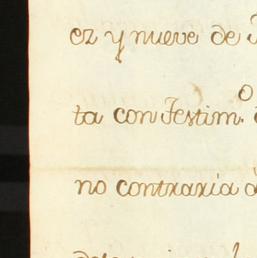 ez y nueve de
ta con Testim.o
no contraria